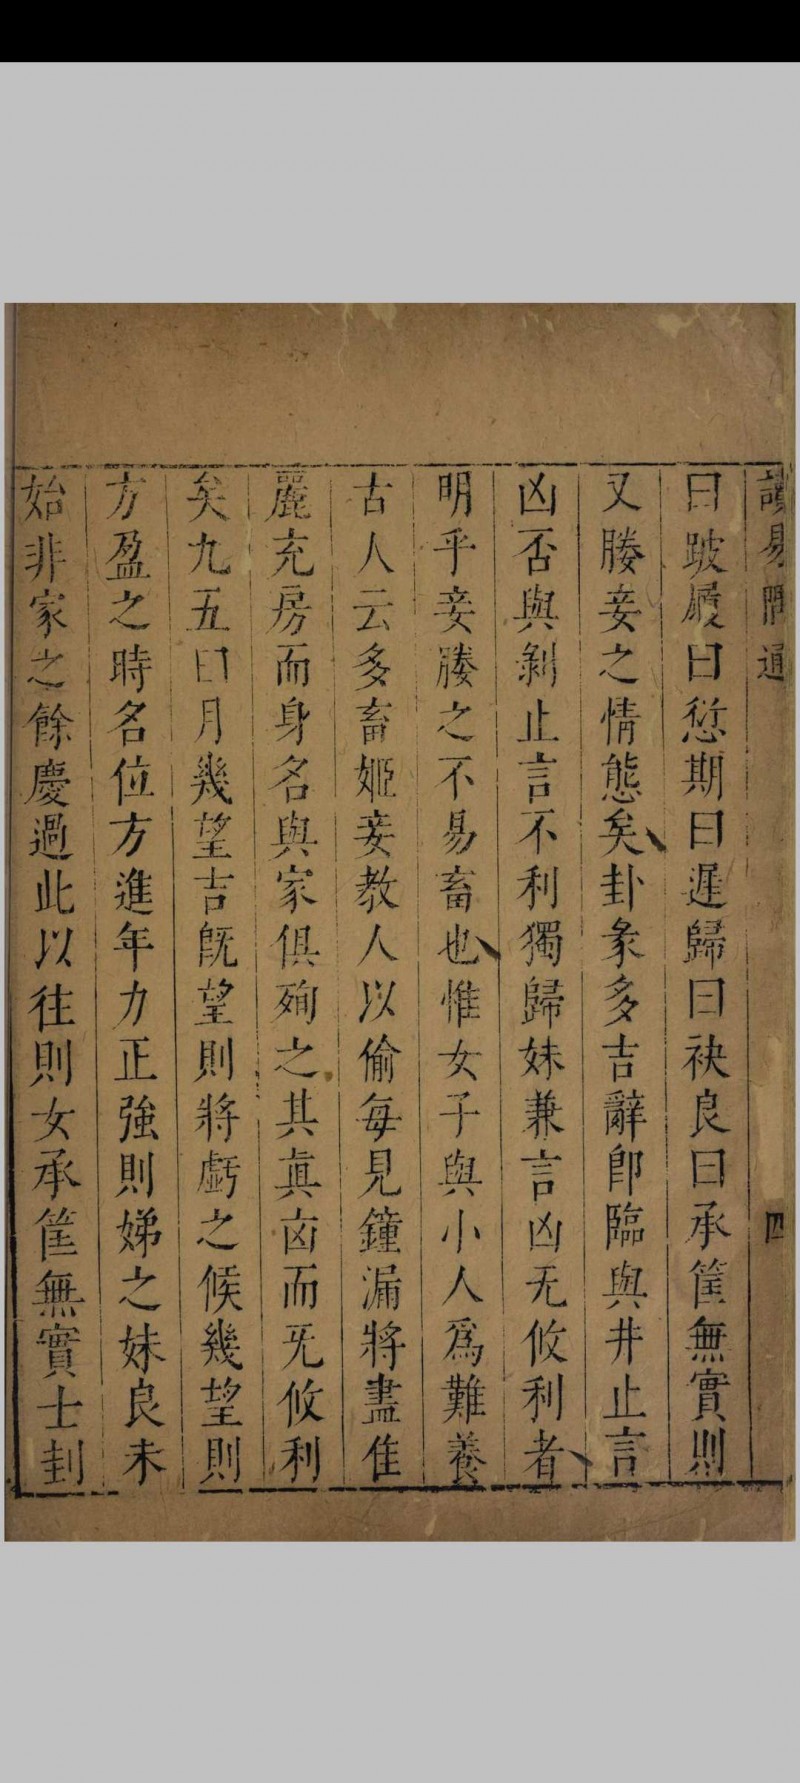 讀易開通
四
曰跛履曰愆期曰遲歸曰袂良曰承筐無實則
又媵妾之情態矣卦彖多吉辭卽臨與井止言
凶否與剝止言不利獨歸妹兼言凶无攸利者
明乎妾媵之不易畜也惟女子與小人爲難養
古人云多畜姬妾教人以偷每見鐘漏將盡佳
麗充房而身名與家俱殉之其眞凶而无攸利
矣九五曰月幾望吉旣望則將虧之候幾望則
方盈之時名位方進年力正強則娣之妹良未
始非家之餘慶過此以往則女承筐無實士刲